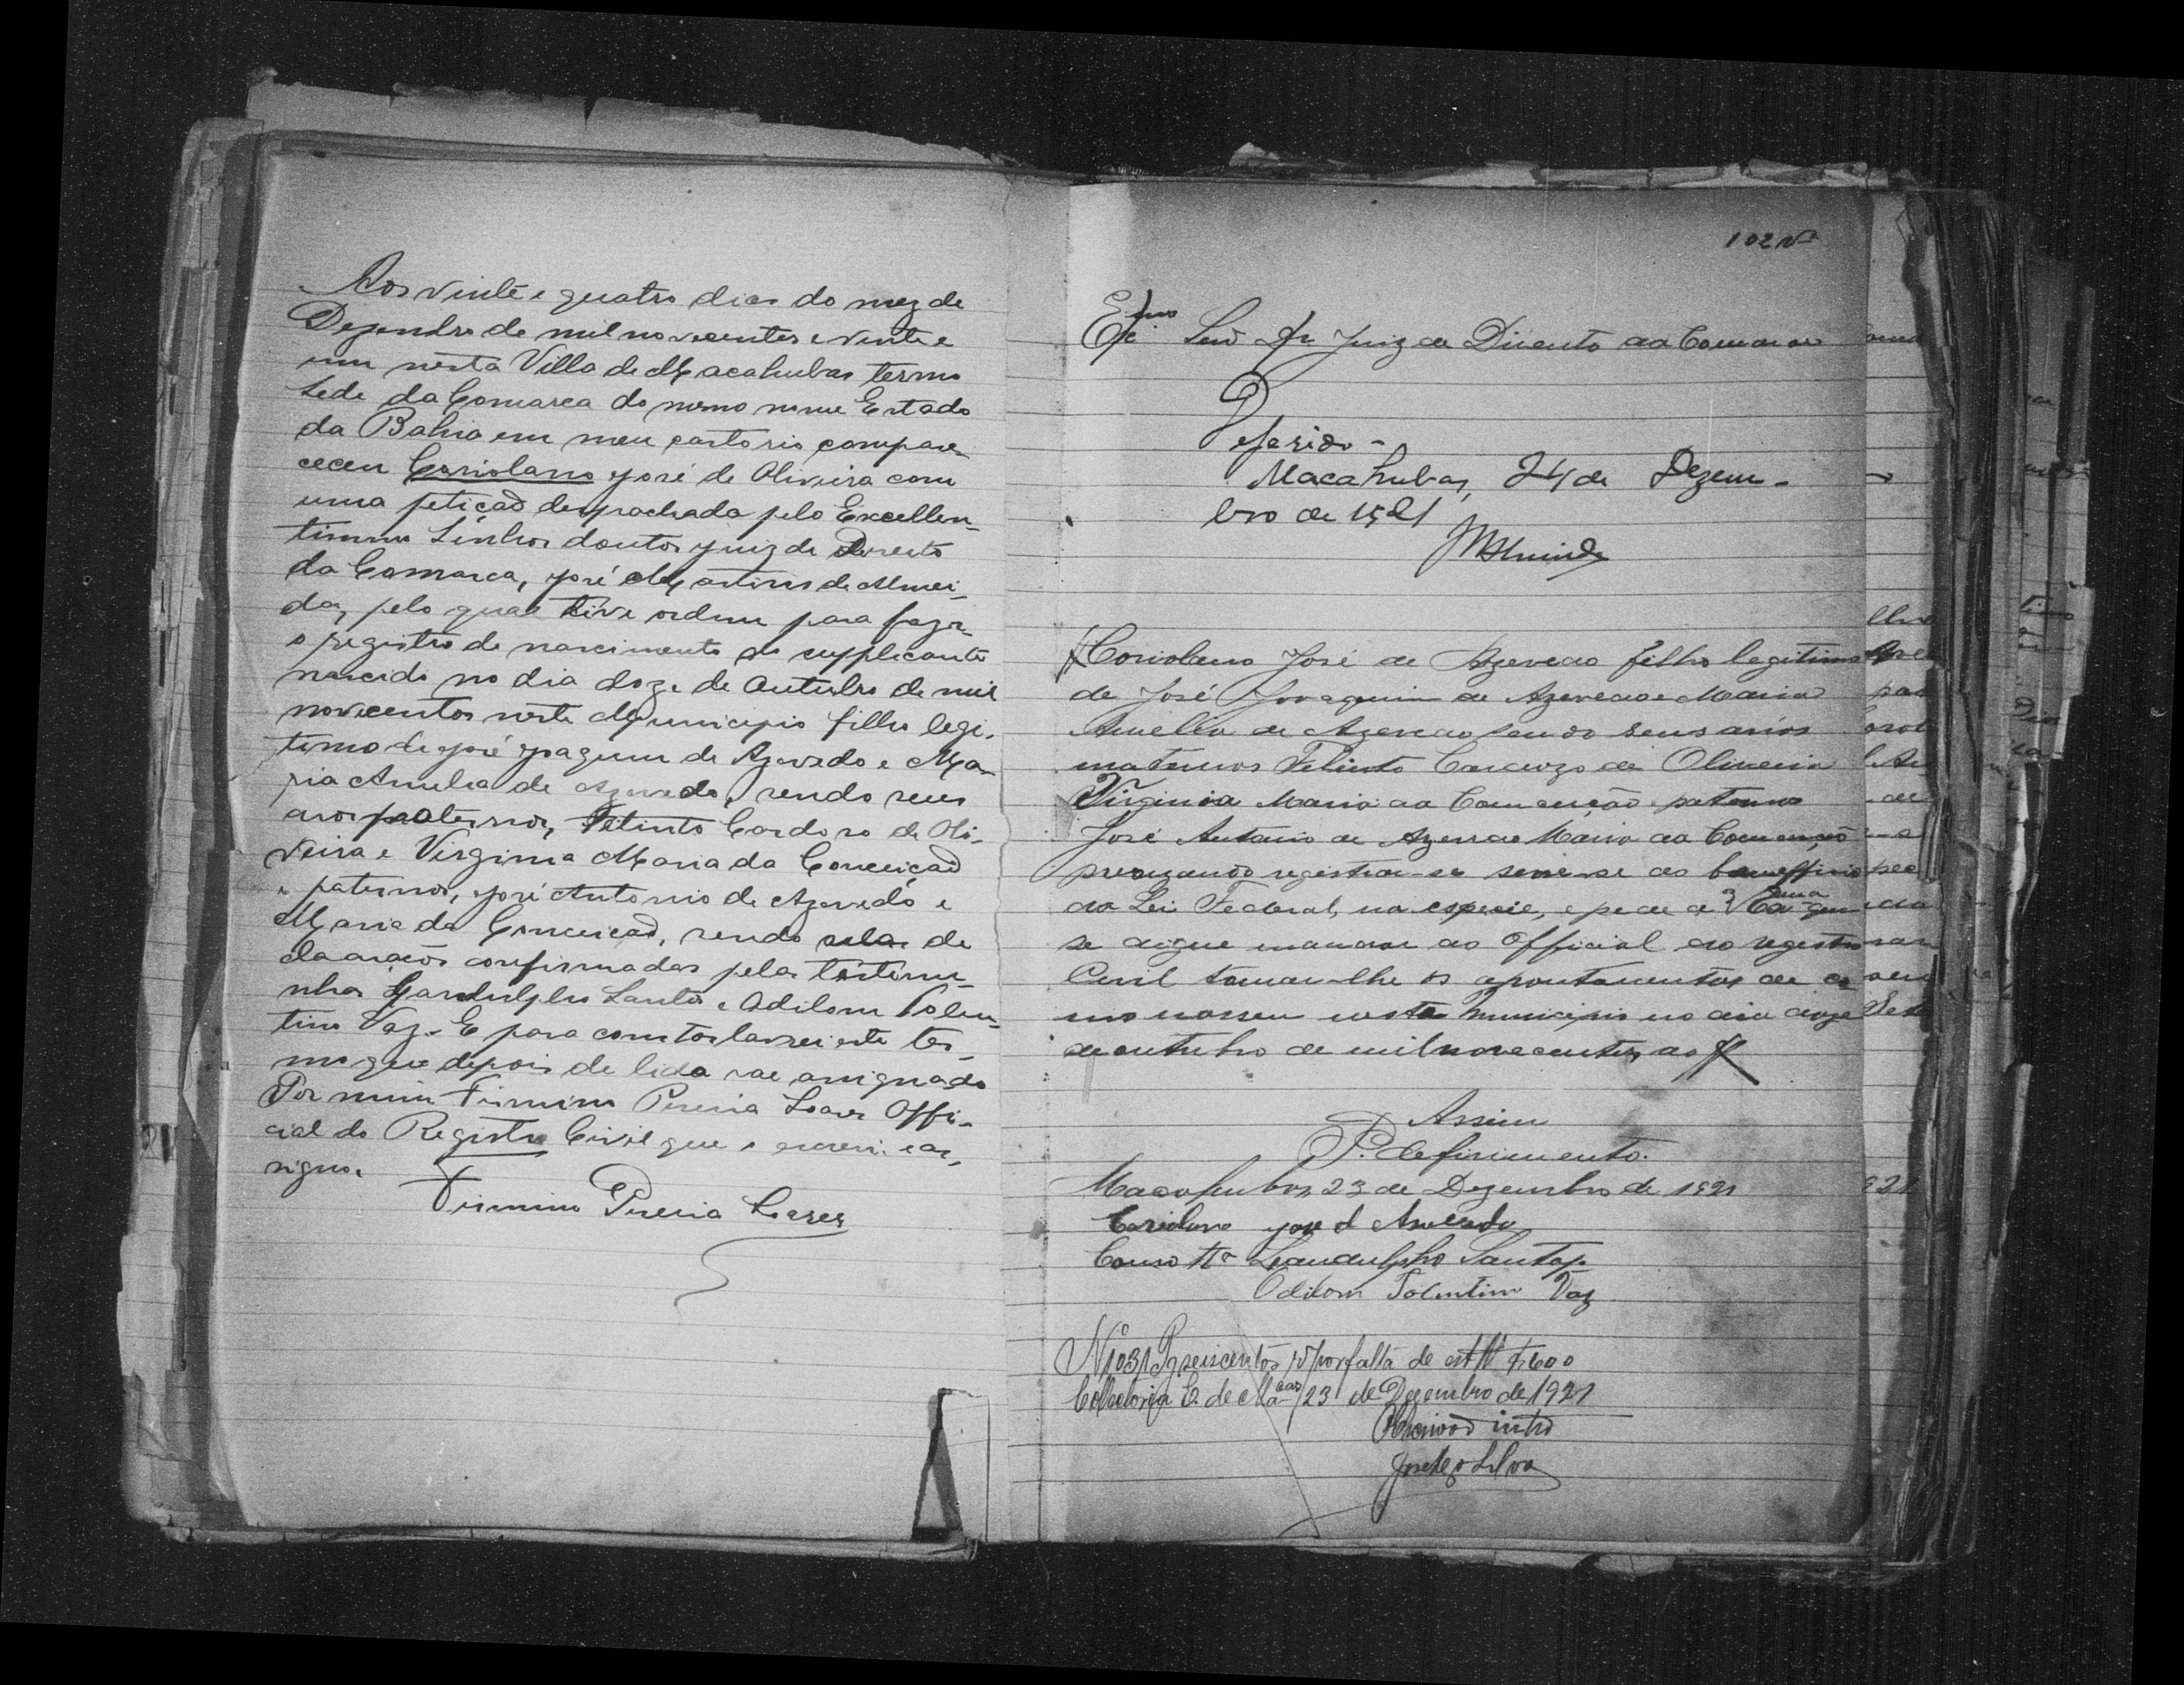 Aos vinte e quatro dias do mez de
Dezembro de mil novecentos e vinte e
um nesta Villa de Macahubas termo
sede da Comarca do mesmo nome Estado
da Bahia em meu cartorio compare-
ceceu Coriolano José de Oliveira com
uma petição despachada pelo Excellen-
tissimo Senhor doutor Juiz de Direito
da Comarca, José Martins de Almei-
da, pelo qual tive ordem para fazer
o registro de nascimento do supplicante
nascido no dia doze de Outubro de mil
novecentos neste Municipio filho legi-
timo de José Joaquim de Azevedo e Ma-
ria Amelia de Azevedo, sendo seus
avos maternos, Felinto Cardoso de Oli-
veira e Virginia Maria da Conceicão
e paternos, José Antonio de Azevedo e
Maria da Conceicão, sendo de
claracões confirmadas pelas testemu-
nhas Gandulpho Santos e Odilom Tolen-
tino Vaz. E para constar lavrei este ter-
mo que depois de lido vae assignado
Por mim Firmino Pereira Soares Offi-
cial do Registro Civil que o escrevi e as-
signo.
Firmino Pereira Soares
102
Exmo Snr Dr Juiz de Direito da Comarca
Deferido -
Macahubas, 24 de Dezem-
bro de 1921
MAlmeida
Coriolano José de Azevedo filho legitimo
de José Joaquim de Azevedo e Maria
Amelia de Azevedo sendo seus avós
maternos Felinto Cardozo de Oliveira
Virginia Maria da Conceição paternos
José Antonio de Azevedo Maria da Conceição
precizando registrar-se serve-se do beneficio
da Lei Federal, na especie, e pede a V Excia que
se digne mandar ao Official do registro
Civil tomar-lhe os apontamentos de co
mo nasceu neste Municipio no dia doze
de outubro de mil novecentos
Assim
P. deferimento.
Macahubas 23 de Dezembro de 1921
Coriolano José d Asevedo
Como tta Gandulpho Santos
Odilom Tolentino Vaz
N 1031 Pg seiscentos rs por falta de est $600
Collectoria E. de Macas 23 de Dezembro de 1921
O Escrivão intro
Silva